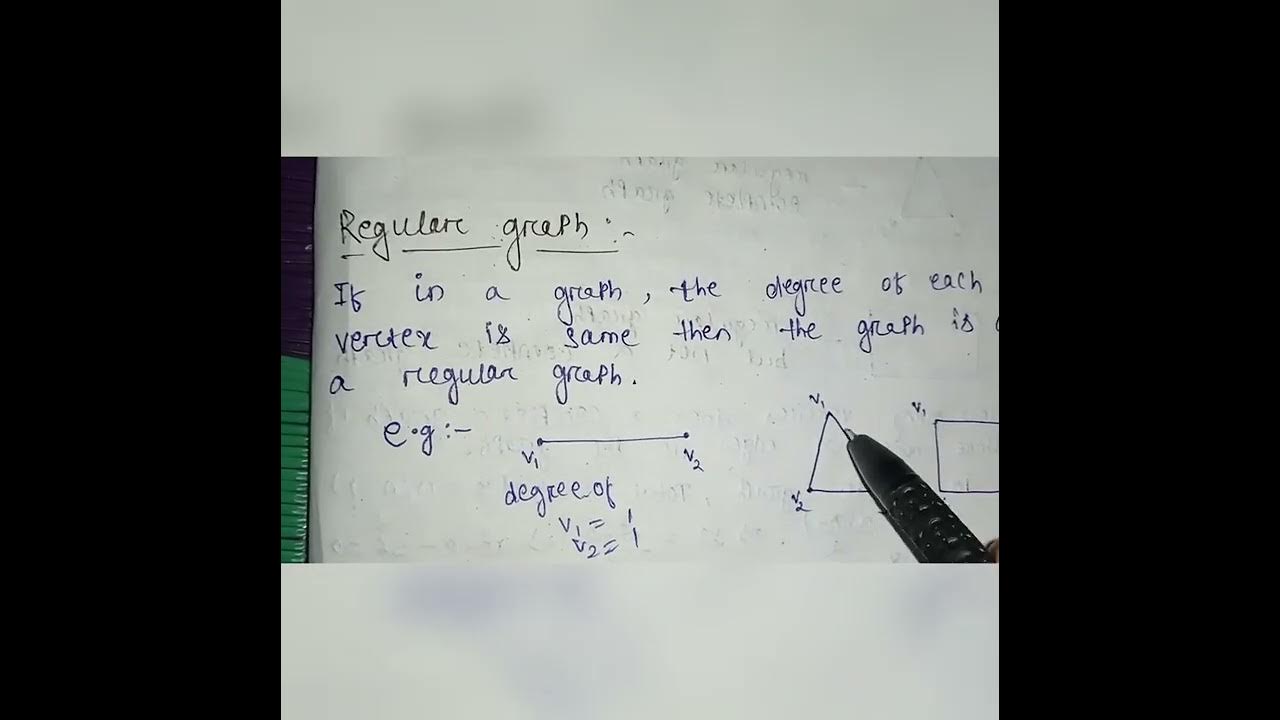 Regular graph :-
If in a graph, the degree of each
vertex is same then the graph is
a regular graph.
e.g :-
v₁ v₂
degree of
v₁ = 1
v₂ = 1
v₁
v₂
v₁